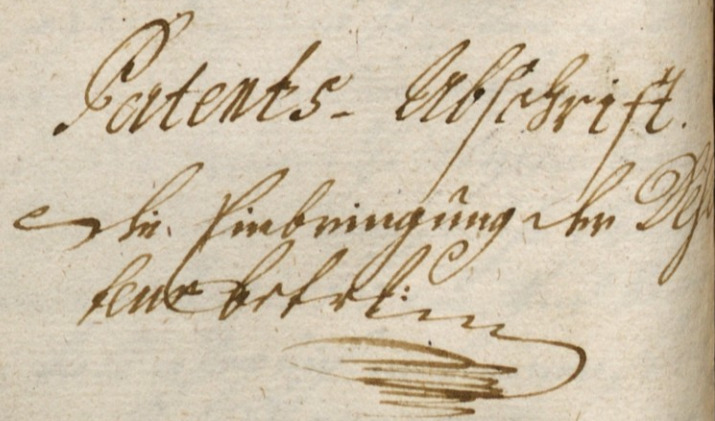 Patents-Abschrift.
die Einbringung der Deser
teur betr: